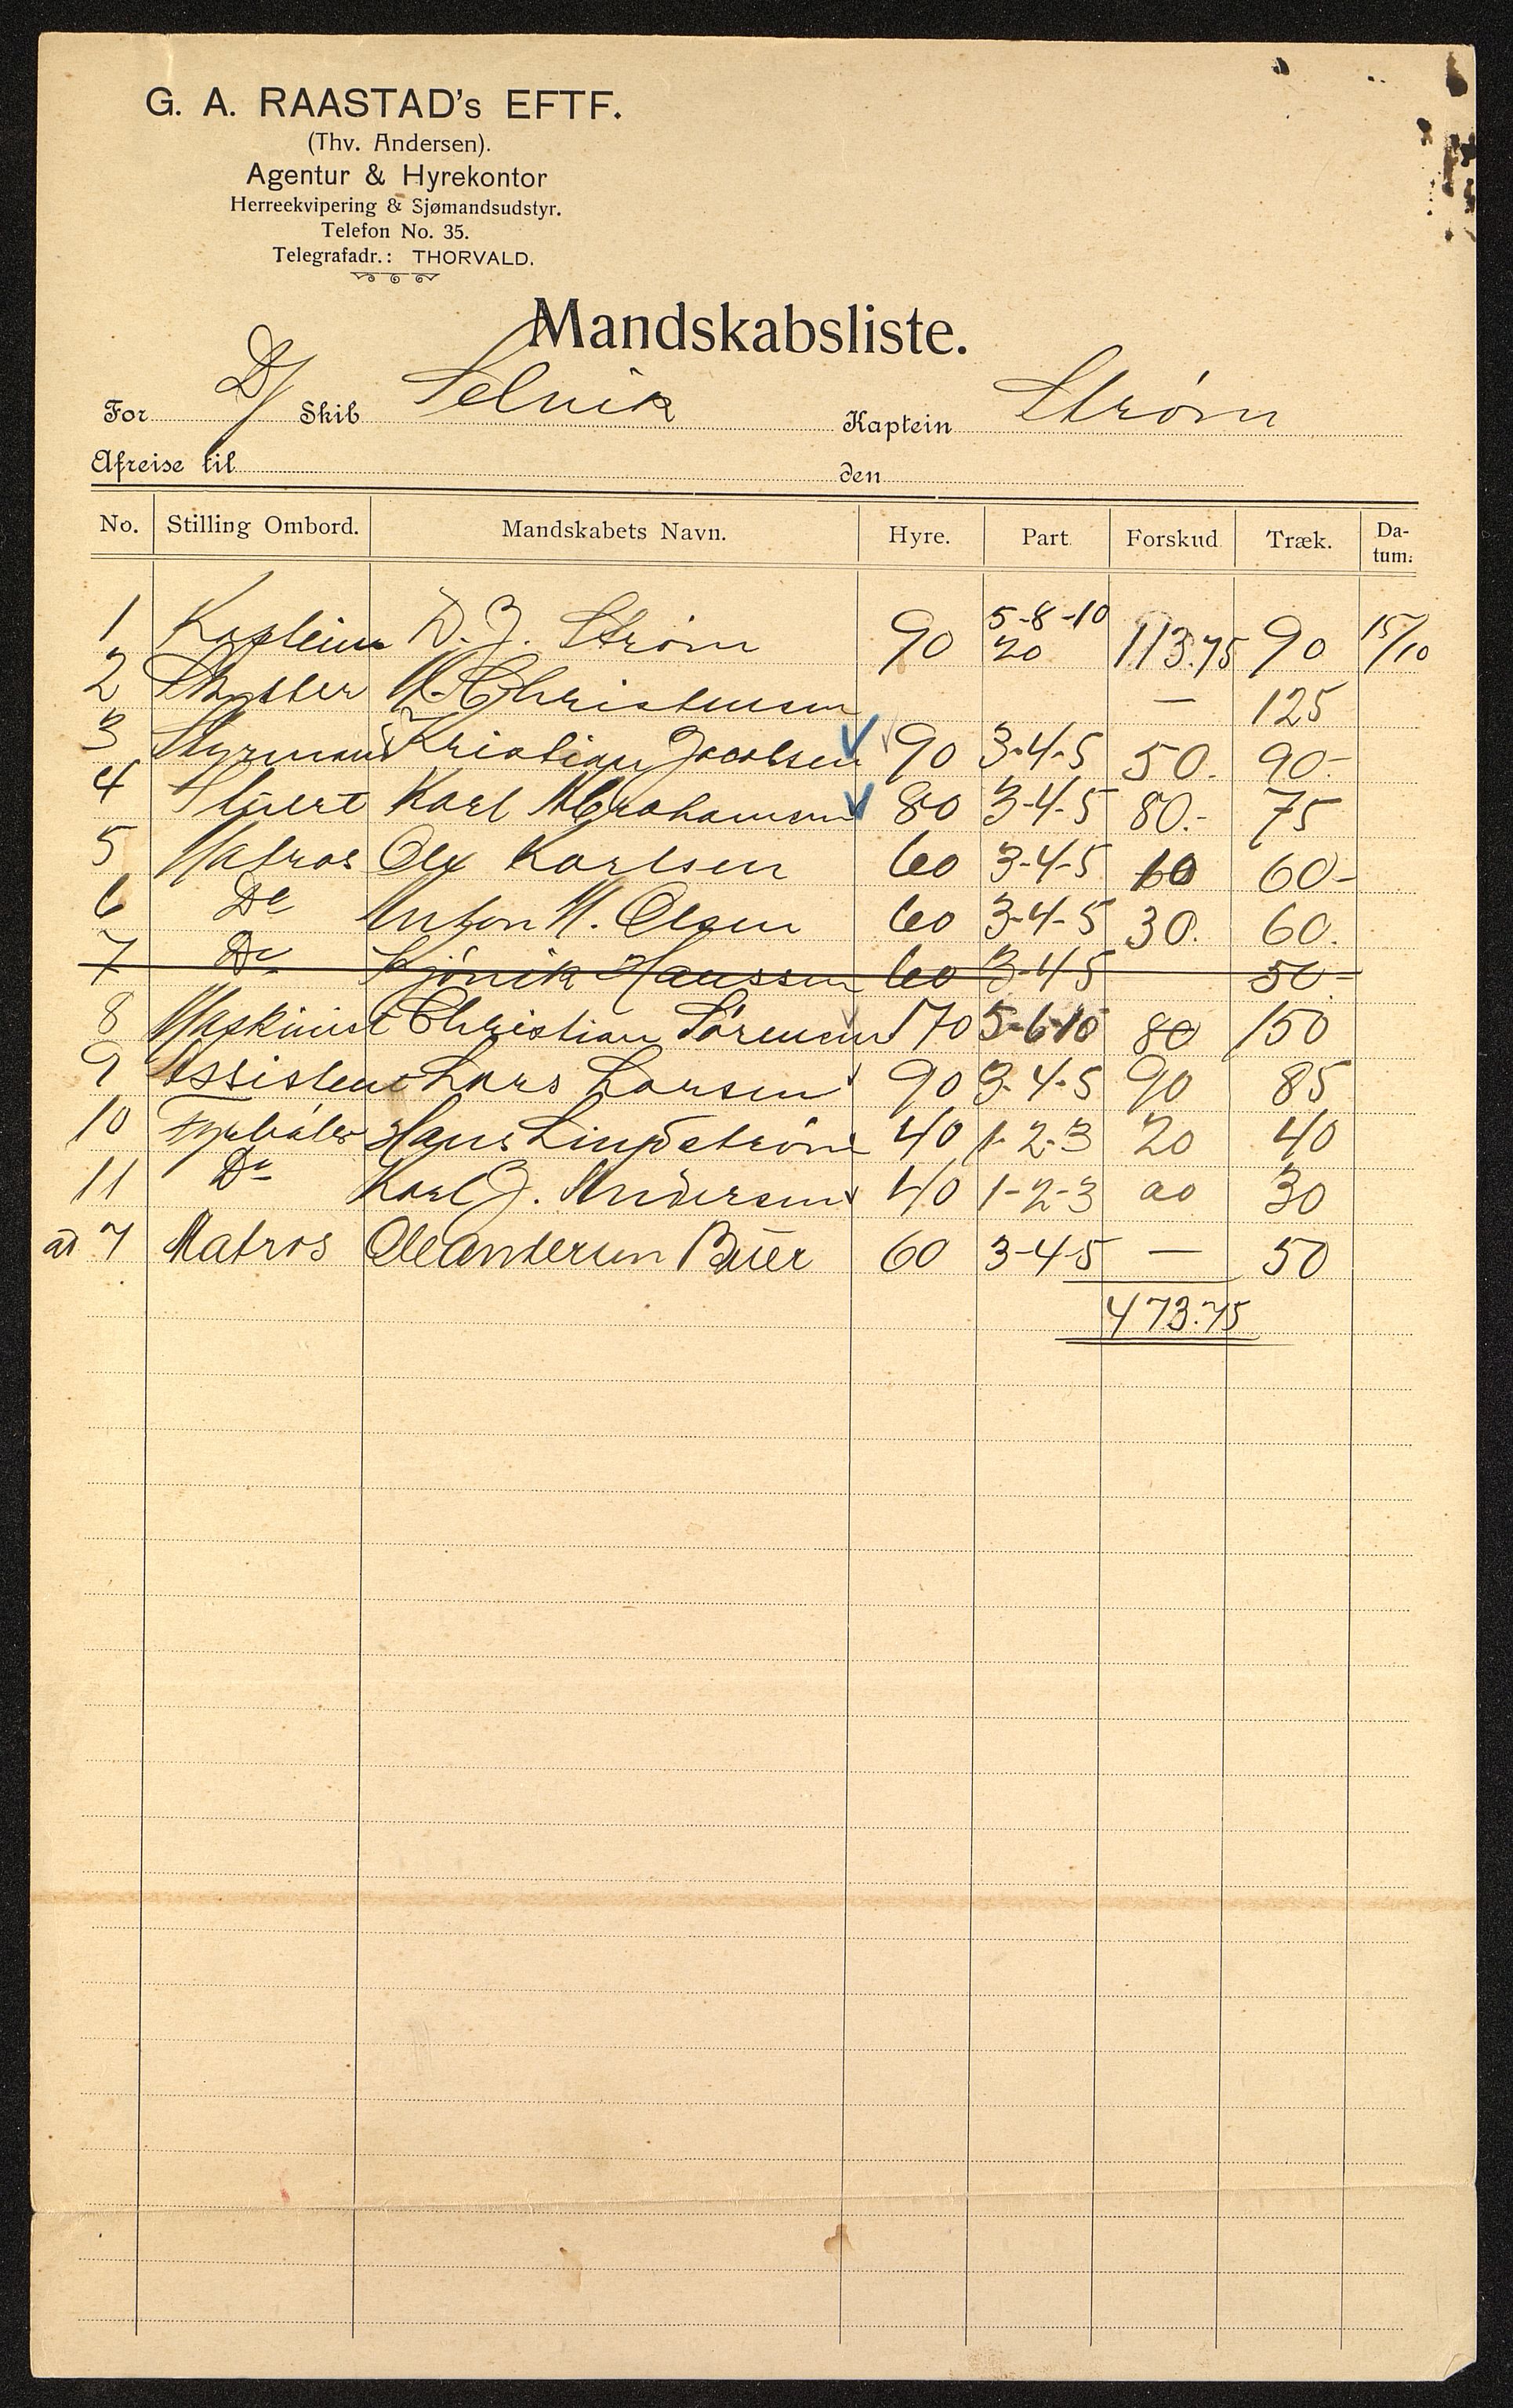 G. A. RAASTAD's EFTF.
(Thv. Andersen).
Agentur & Hyrekontor
Herreekvipering & Sjømandsudstyr.
Telefon No. 35.
Telegrafadr.: THORVALD.
Mandskabsliste.
For D/ Skib Selvik Kaptein Strøm
Afreise til den
No. Stilling Ombord. Mandskabets Navn. Hyre. Part. Forskud Træk. Da-tum:
1 Kaptein D. J. Strøm 90 5-8-10 20 113.75 90 15/10
2 Christensen — 125
3 Styrmand Kristian Jacobsen 90 3-4-5 50.- 90.-
4 Stuert Karl Abrahamsen 80 3-4-5 80.- 75
5 Matros Ole Karlsen 60 3-4-5 60-
6 Do Anton M. Olsen 60 3-4-5 30. 60.
7 Do Hanssen 60 3-4-5 50-
8 Maskinist Christian Sørensen 170 5-6-10 80 150
9 Assistent Lars Larsen 90 3-4-5 90 85
10 Fyrbøter Hans Lindstrøm 40 1-2-3 20 40
11 Do Karl J. Andersen 40 1-2-3 20 30
ad 7 Matros Ole Andersen Buer 60 3-4-5 — 50
473.75